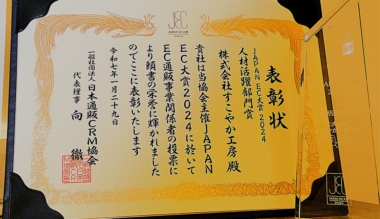 JEC
表彰状
JAPAN EC大賞 2024
人材活躍部門賞
株式会社すこやか工房 殿
貴社は当協会主催JAPAN
EC大賞2024に於いて
EC通販事業関係者の投票に
より頭書の栄誉に輝かれました
のでここに表彰いたします
令和七年一月二十九日
一般社団法人 日本通販CRM協会
代表理事 向 徹